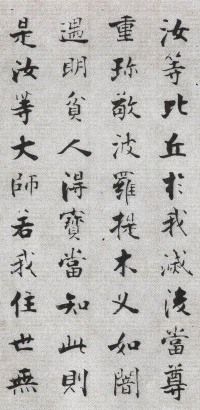 汝等比丘於我滅後當尊
重珎敬波羅提木叉如闇
遇明貧人得寳當知此則
是汝等大師若我住世無